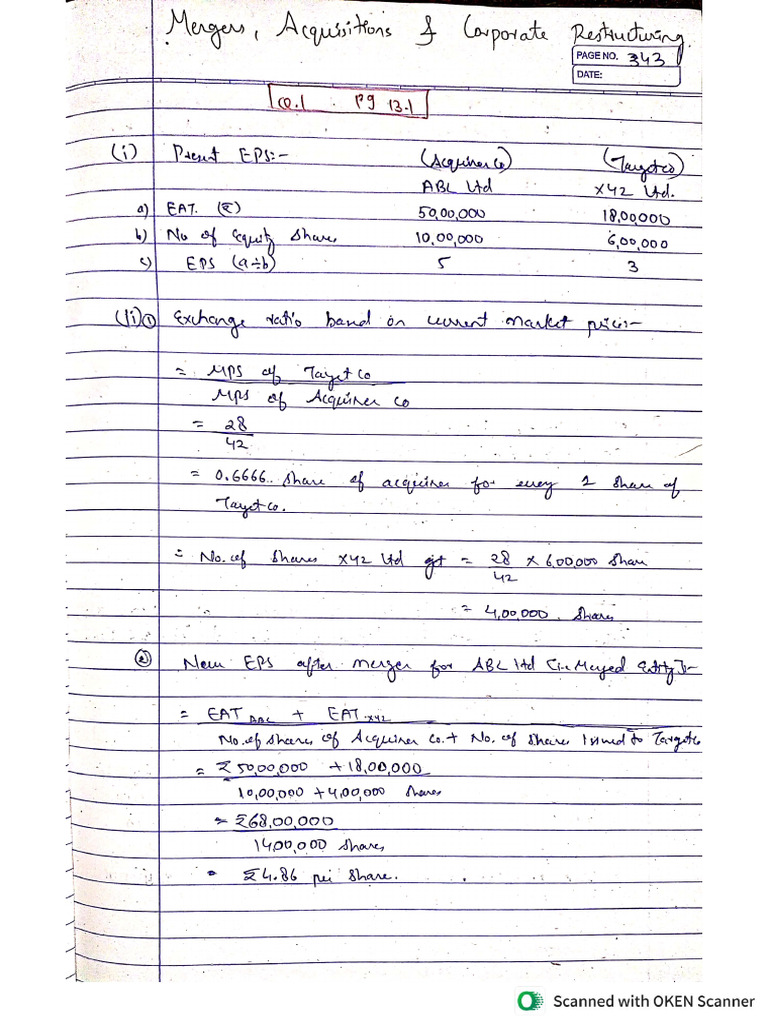 Mergers, Acquisitions & Corporate Restructuring.
PAGE NO. 343
DATE:
Q.1 Pg 13.1
(i) Present EPS:- (Acquirer Co) (Target co)
ABL Ltd XYZ Ltd.
a) EAT. (₹) 50,00,000 18,00,000
b) No of Equity Shares 10,00,000 6,00,000
c) EPS (a÷b) 5 3
(ii) ① Exchange ratio based on current market price:-
= MPS of Target Co
MPS of Acquirer Co
= 28
42
= 0.6666.. Share of acquirer for every 1 Share of
Target Co.
= No. of Shares XYZ Ltd get = 28 × 6,00,000 Share
42
= 4,00,000 Shares
② New EPS after merger for ABL ltd (i.e Merged Entity):-
= EAT ABL + EAT XYZ
No. of shares of Acquirer Co. + No. of Shares Issued to Target Co
= ₹ 50,00,000 + 18,00,000
10,00,000 + 4,00,000 Shares
= ₹68,00,000
14,00,000 Shares
= ₹4.86 per Share.
Scanned with OKEN Scanner